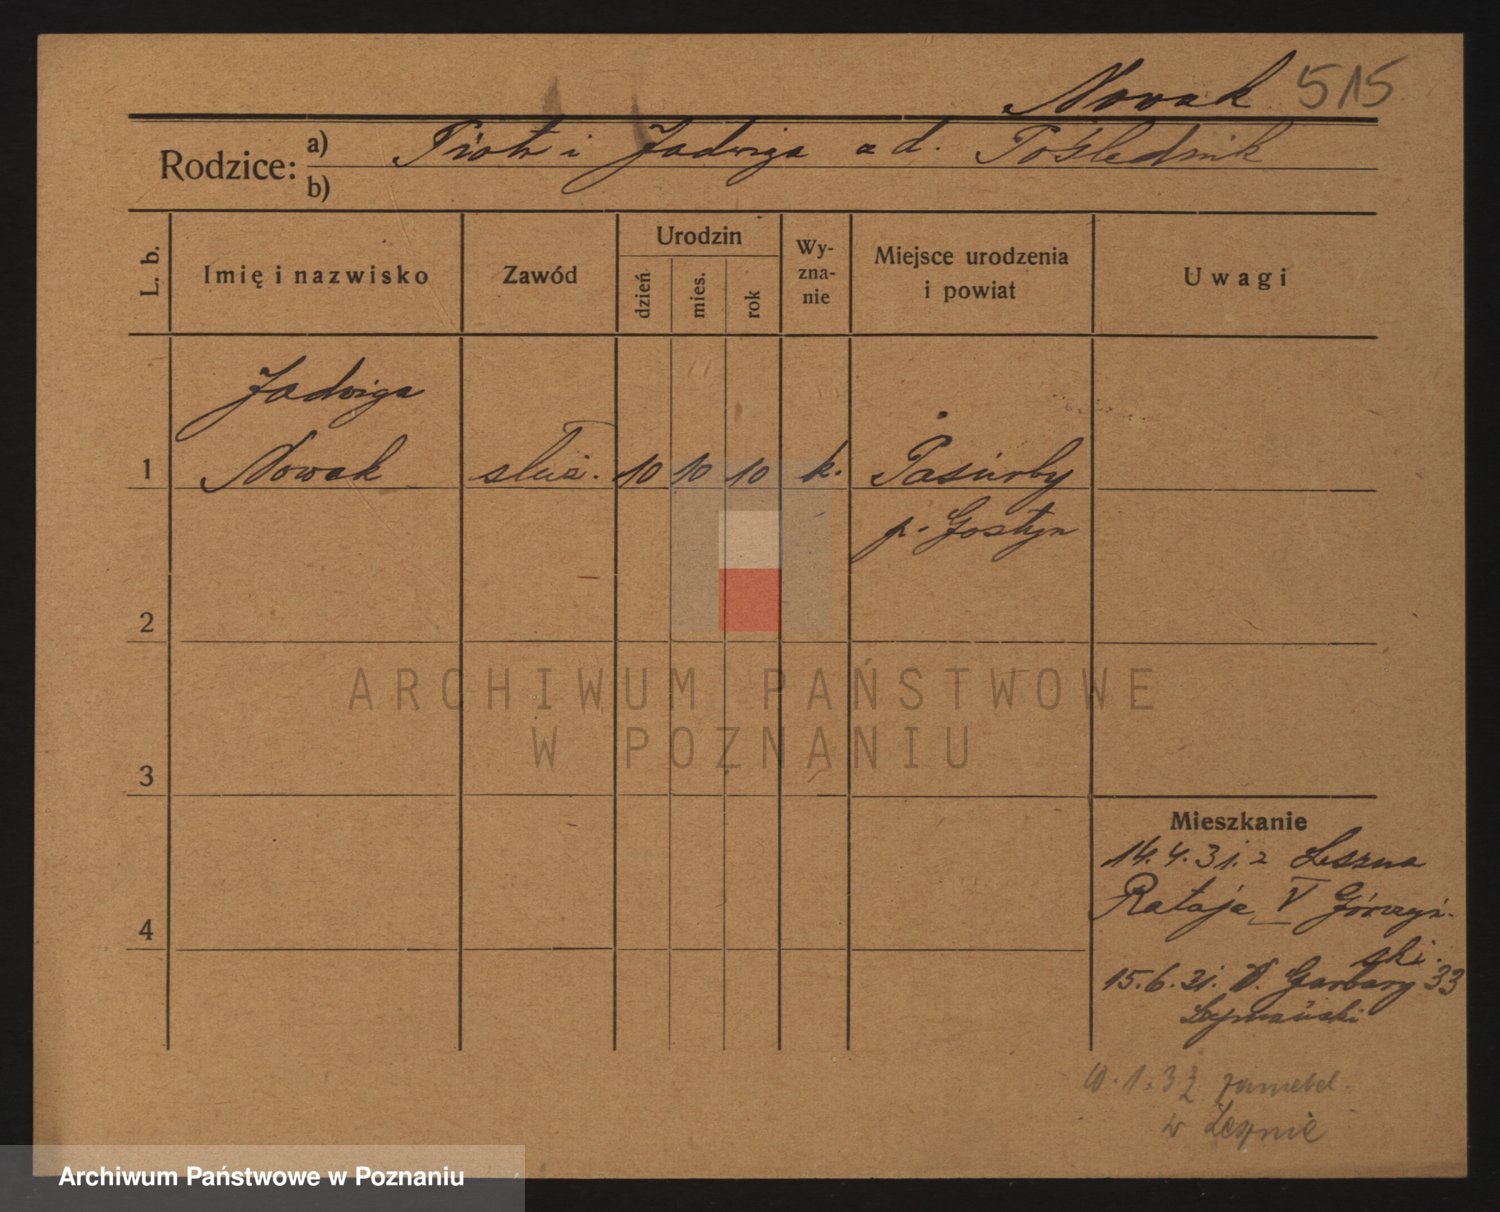 Nowak 515
Rodzice: a) Piotr i Jadwiga z d. Poślednik
b)
L. b.
Imię i nazwisko
Zawód
Urodzin
dzień
mies.
rok
Wy-
zna-
nie
Miejsce urodzenia
i powiat
Uwagi
Jadwiga
1 Nowak służ. 10 10 10 k.
p. Gostyn
2
ARCHIWUM PAŃSTWOWE
W POZNANIU
3
Mieszkanie
14.4.31. z Leszna
Rataja V Górczyń-
4
ski.
15.6.31. Garbary 33
Szymański
1.33 zameld.
w Lesznie
Archiwum Państwowe w Poznaniu